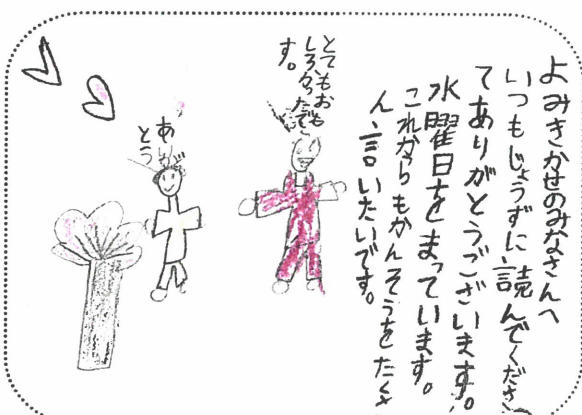 よみきかせのみなさんへ
いつもじょうずに読んでくださっ
てありがとうございます。
水曜日をまっています。
これからもかんそうをたくさ
ん言いたいです。
とてもおも
しろかったで
す。
あがとう